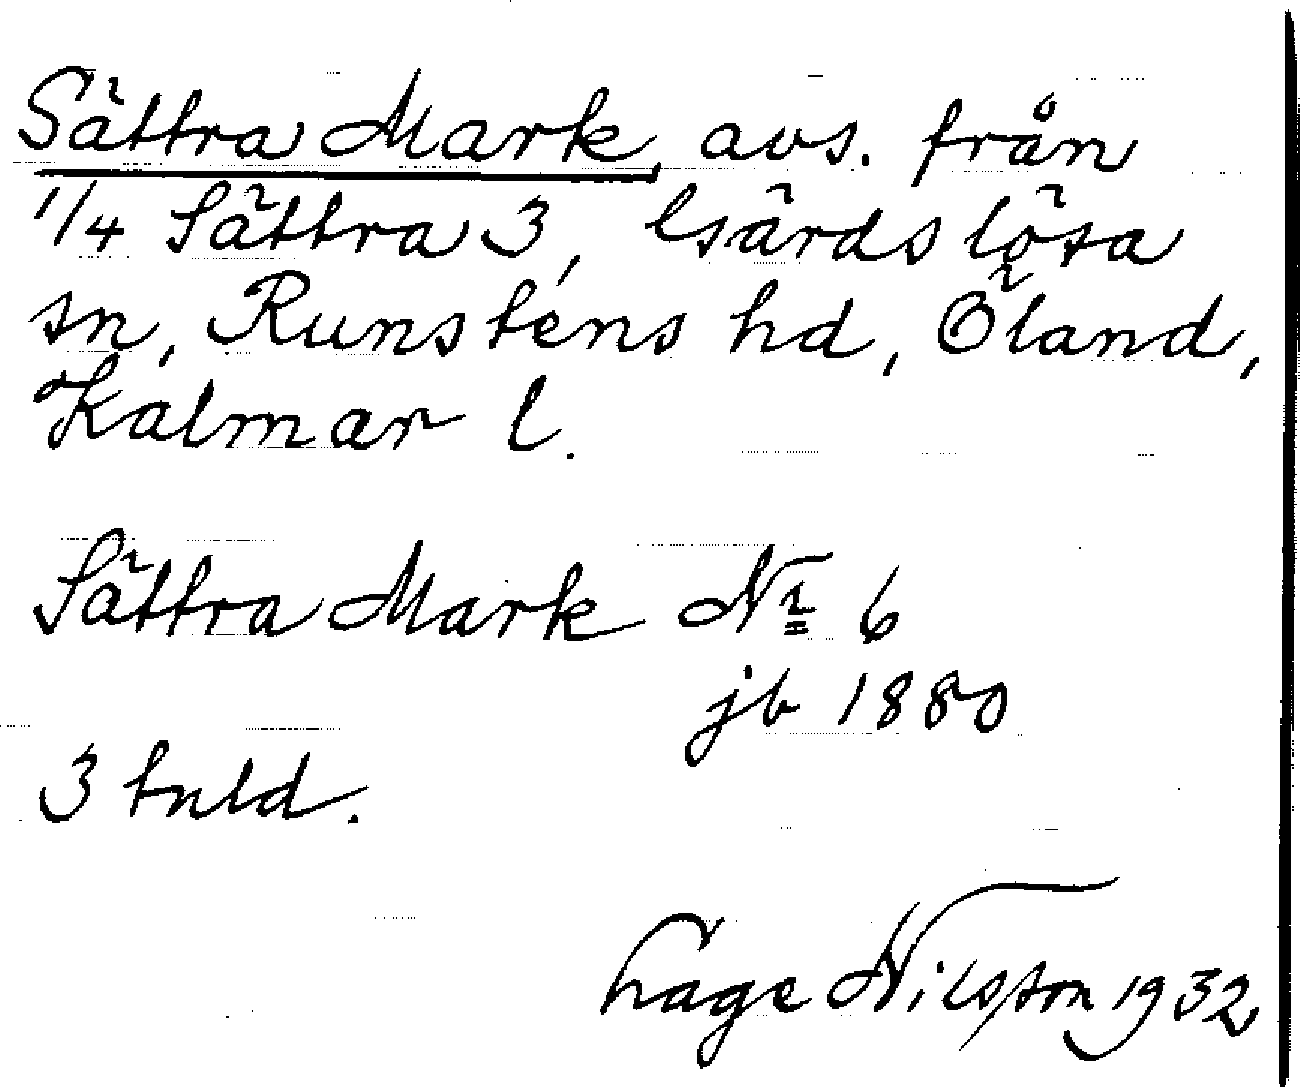 Sättra Mark, avs. från
1/4 Sättra 3, Gärdslösa
sn, Runstens hd, Öland,
Kalmar l.
Sättra Mark Nr 6
jb 1880
3 tnld.
Nilsson 1932